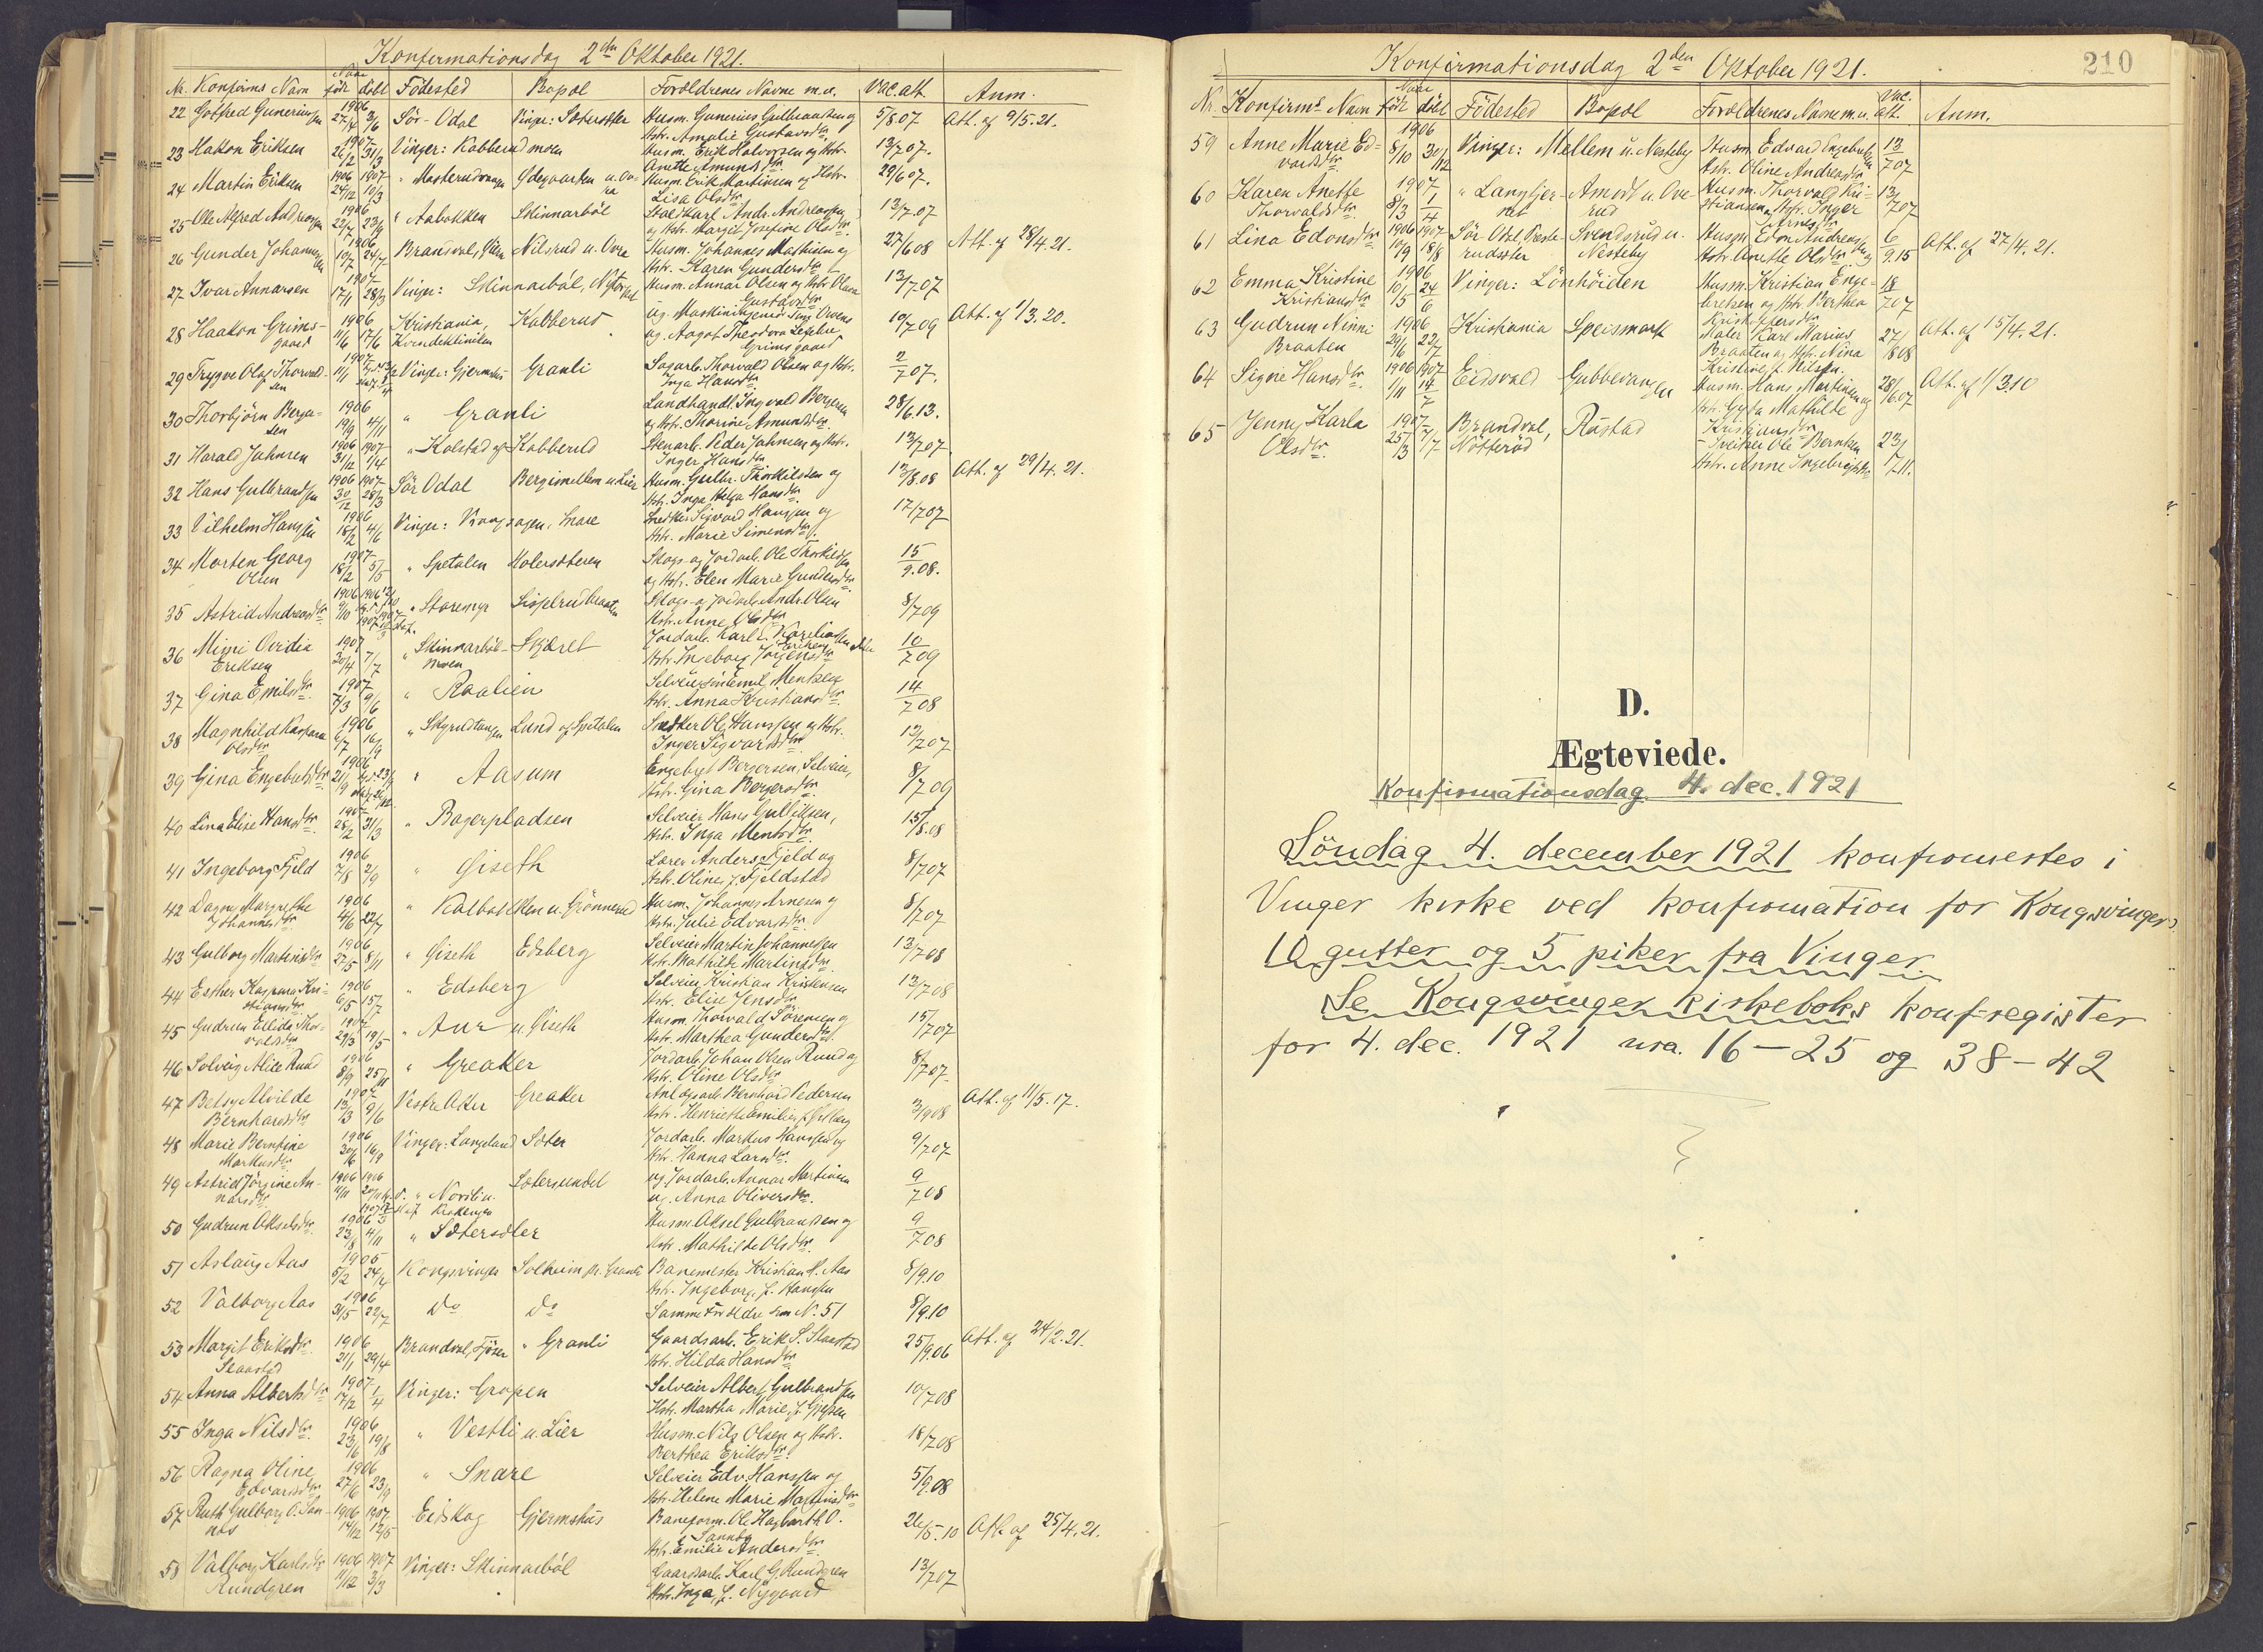 Konfirmationsdag 2den Oktober 1921.
Nr. Konfirms Navn Naar født døbt Födested Bopæl Forældrenes Navne m.v. Vac. att. Anm.
22 Gotfred Gunerius­sen 1906 27/4 3/6 Sör-Odal Vinger: Husm. Gunerius Gulbrandsen og 5/8 07 Att. af 9/5. 21.
Hstr. Amalie Gustavsdtr.
23 Hakon Eriksen 1907 26/2 31/3 Vinger: Kabberudmoen Husm. Erik Halvorsen og Hstr. 13/7 07.
Anette Amundsdtr.
24 Martin Eriksen 1906 24/12 1907 10/3 " Ödegaarden u. Husm. Erik Martinsen og Hstr. 29/6 07.
Lisa Olsdtr.
25 Ole Alfred Andreassen 1906 22/7 23/9 " Aabakken Skinnarböl Andr. Andreassen 13/7. 07
og Hstr. Margit Josefine Olsdtr.
26 Gunder Johannessen 1906 10/7 24/7 Brandval, Nilsrud u. Overud Husm. Johannes Mathisen og 27/6 08 Att. af 28/4. 21.
Hstr. Karen Gundersdtr.
27 Ivar Annarsen 1907 17/1 28/3 Vinger: Skinnarböl, Husm. Annar Olsen og Hstr. Olava 13/7 07
Gustavsdtr.
28 Haakon Grims-
gaard 1906 17/6 Kristiania, Kvindekliniken Kabberud Ug. Maskiningeniör Owens 10/7 09 Att. af 1/3. 20.
ug. Aagot Theodora
Grimsgaard
29 Trygve Olaf Thorvald-
sen 1907 11/1 Vinger: Gjermshus Granli Sagarb. Thorvald Olsen og Hstr. 2/7 07.
Inga Hansdtr.
30 Thorbjörn Berge-
sen 1906 19/9 4/11 " Granli Landhandl. Ingvald Bergesen 28/6. 13.
og Hstr. Thorine Amundsdtr.
31 Harald Johnsen 1906 31/12 1907 1/4 " Kolstad af Kabberud Stenarb. Peder Johnsen og Hstr. 13/7 07
Inger Hansdtr.
32 Hans Gulbrandsen 1906 30/12 1907 28/3 Sör Odal Bergimellem u. Lier Husm. Gulbr. Thorkildsen og 13/8. 08 Att. af 29/4. 21.
Hstr. Inga Helga Hansdtr.
33 Vilhelm Hanssen 1906 18/2 4/6 Vinger: Snare Snedker Sigvard Hanssen og 17/7 07
Hstr. Marie Simensdtr.
34 Morten Georg
Olsen 1907 18/2 5/5 " Spetalen Holersæteren Skogs- og Jordarb. Ole Thorkildsen 15/9. 08.
og Hstr. Elen Marie Gundersdtr.
35 Astrid Andreasdtr. 1906 9/10 " Storemyr Sigfridbraaten Skogs- og Jordarb. Andr. Olsen 8/7 09
Hstr. Anne Olsdtr.
36 Mimi Ovidia
Eriksen 1907 30/4 7/7 " Skinnarböl-
moen Skjæret Jordarb. Karl E. 10/7 09
Hstr. Ingeborg Jörgensdtr.
37 Gina Emilsdtr. 1907 7/3 9/6 " Raalien Selveiersön Emil Mentzen 14/7 08
Hstr. Anna Kristiansdtr.
38 Magnhild Kaspara
Olsdtr. 1906 6/7 16/9 " Skyrudtangen Lund af Spetalen Snedker Ole Hanssen og Hstr. 13/7 07
Inger Sigvardsdtr.
39 Gina Engebretsdtr. 1906 21/9 " Aasum Engebret Bergersen, Selveier, 8/7 09
Hstr. Gina Bergersdtr.
40 Lina Elise Hansdtr. 1907 28/2 31/3 " Bagerpladsen Selveier Hans Gulliksen, 15/8. 08
Hstr. Inga Mentsdtr.
41 Ingeborg Fjeld 1906 7/8 2/9 " Giseth Lærer Anders Fjeld og 8/7 07
Hstr. Oline f. Fjeldstad
42 Dagny Margrethe
Johannesdtr. 1906 4/6 22/7 " Kalbakken u. Grönnerud Husm. Johannes Arnesen og 8/7 07
Hstr. Julie Edvardsdtr.
43 Gulborg Martinsdtr. 1906 27/5 8/11 " Giseth Edsberg Selveier Martin Johannessen 13/7 08
Hstr. Mathilde Martinsdtr.
44 Esther Kaspara Kri-
stiansdtr. 1906 6/5 15/7 " Edsberg Selveier Kristian Kristensen 13/7 08
Hstr. Elise Jensdtr.
45 Gudrun Ellida Thor-
valdsdtr. 1907 29/3 19/5 " Aur u. Giseth Husm. Thorvald Sörensen og 15/7 07
Hstr. Marthea Gundersdtr.
46 Solveig Alice Ruud 1906 8/9 25/11 " Greaker Jordarb. Johan Olsen Ruud og 8/7 07.
Hstr. Oline Olsdtr.
47 Betsy Alvilde
Bernhardsdtr. 1907 13/3 9/6 Vestre Aker Greaker Anlægsarb. Bernhard Pedersen 3/9 08 Att. af 11/5. 17.
Hstr. Henriette Emilie
48 Marie Berntine
Markusdtr. 1906 30/6 16/9 Vinger: Langeland Sæter Jordarb. Markus Hanssen og 9/7 07
Hstr. Hanna Larsdtr.
49 Astrid Jörgine An-
narsdtr. 1906 11/11 1906 " Nordli u. Sætersundet ug. Jordarb. Annar Martinsen 9/7 08
ug. Anna Oliversdtr.
50 Gudrun Akselsdtr. 1906 23/8 4/11 " Sætersæter Husm. Aksel Gulbrandsen og 9/7 08
Hstr. Mathilde Olsdtr.
51 Aslaug Aas 1905 5/2 24/4 Kongsvinger Solheim pr. Granli Banemester Kristian H. Aas 8/9. 10
Hstr. Ingeborg, f. Hanssen
52 Valborg Aas 1906 31/5 22/7 Do Do Samme Forældre som No. 51 8/9. 10
53 Margit Eriksdtr.
Skaarstad 1906 21/1 29/4 Brandval, " Granli Gaardsarb. Erik S. Skaarstad 25/9. 06 Att. af 24/2. 21.
Hstr. Hilda Hansdtr.
54 Anna Albertsdtr. 1907 17/2 1/4 Vinger: Gropen Selveier Albert Gulbrandsen 10/7 08
Hstr. Martha Marie, f.
55 Inga Nilsdtr. 1906 23/6 19/8 " Vestli u. Lier Husm. Nils Olsen og Hstr. 18/7 08
Berthea Eriksdtr.
56 Ragna Oline
Edvardsdtr. 1906 27/6 23/9 " Snare Selveier Edv. Hanssen og 5/9. 08
Hstr. Helene Marie Martinsdtr.
57 Ruth Gulborg O. San-
nes 1906 14/12 1907 12/5 Eidskog Gjermshus Baneform. Ole Hagbarth O. 26/5. 10 Att. af 25/4. 21.
Hstr. Emilie Andersdtr.
58 Valborg Karlsdtr.
Rundgren 1906 11/12 1907 3/3 Vinger: Skinnarböl Gaardsarb. Karl G. Rundgren 13/7 07
Hstr. Inga, f. Nygaard
210
Konfirmationsdag 2den Oktober 1921.
Nr. Konfirms Navn Naar født døbt Födested Bopæl Forældrenes Navne m.v. Vac. att. Anm.
59 Anne Marie Ed-
vardsdtr. 1906 8/10 30/12 Vinger: Mellem u. Nesteby Husm. Edvard Engebretsen 13/7 07
Hstr. Oline Andreasdtr.
60 Karen Anette
Thorvaldsdtr. 1907 8/3 1/4 " Langtjer-
net Amodt u. Ove-
rud Husm. Thorvald Kri- 13/7 07
stiansen og Hstr. Inger
Arnesdtr.
61 Lina Edonsdtr. 1906 10/9 1907 18/8 Sör Odal, Svendsrud u.
Nesteby Husm. Edon Andreassen og 6/9. 15 Att. af 27/4. 21.
Hstr. Anette Olsdtr.
62 Emma Kristine
Kristiansdtr. 1906 10/5 24/6 Vinger: Lönhöiden Husm. Kristian Enge- 18/7 07
bretsen og Hstr. Berthea
Kristoffersdtr.
63 Gudrun Ninni
Braaten 1906 29/6 22/7 Kristiania Speismark Maler Karl Marius 27/8 08 Att. af 15/4. 21.
Braaten og Hstr. Nina
Kristine f. Nilsen.
64 Signe Hansdtr. 1906 1/11 1907 14/7 Eidsvold Gubbevangen Husm. Hans Martinsen og 28/6. 07 Att. af 1/3 10
Hstr. Gyda Mathilde
Kristiansdtr.
65 Jenny Karla
Olsdtr. 1907 25/3 7/7 Brandval,
Nötteröd Rustad Sveitser Ole Berntsen 23/7. 11.
Hstr. Anne Ingebrigtsdtr.
D.
Ægteviede.
Konfirmationsdag 4. dec. 1921
Söndag 4. december 1921 konfirmertes i
Vinger kirke ved konfirmation for Kongsvinger
10 gutter og 5 piker fra Vinger.
Se Kongsvinger kirkeboks konf-register
for 4. dec. 1921 nra. 16 – 25 og 38 – 42